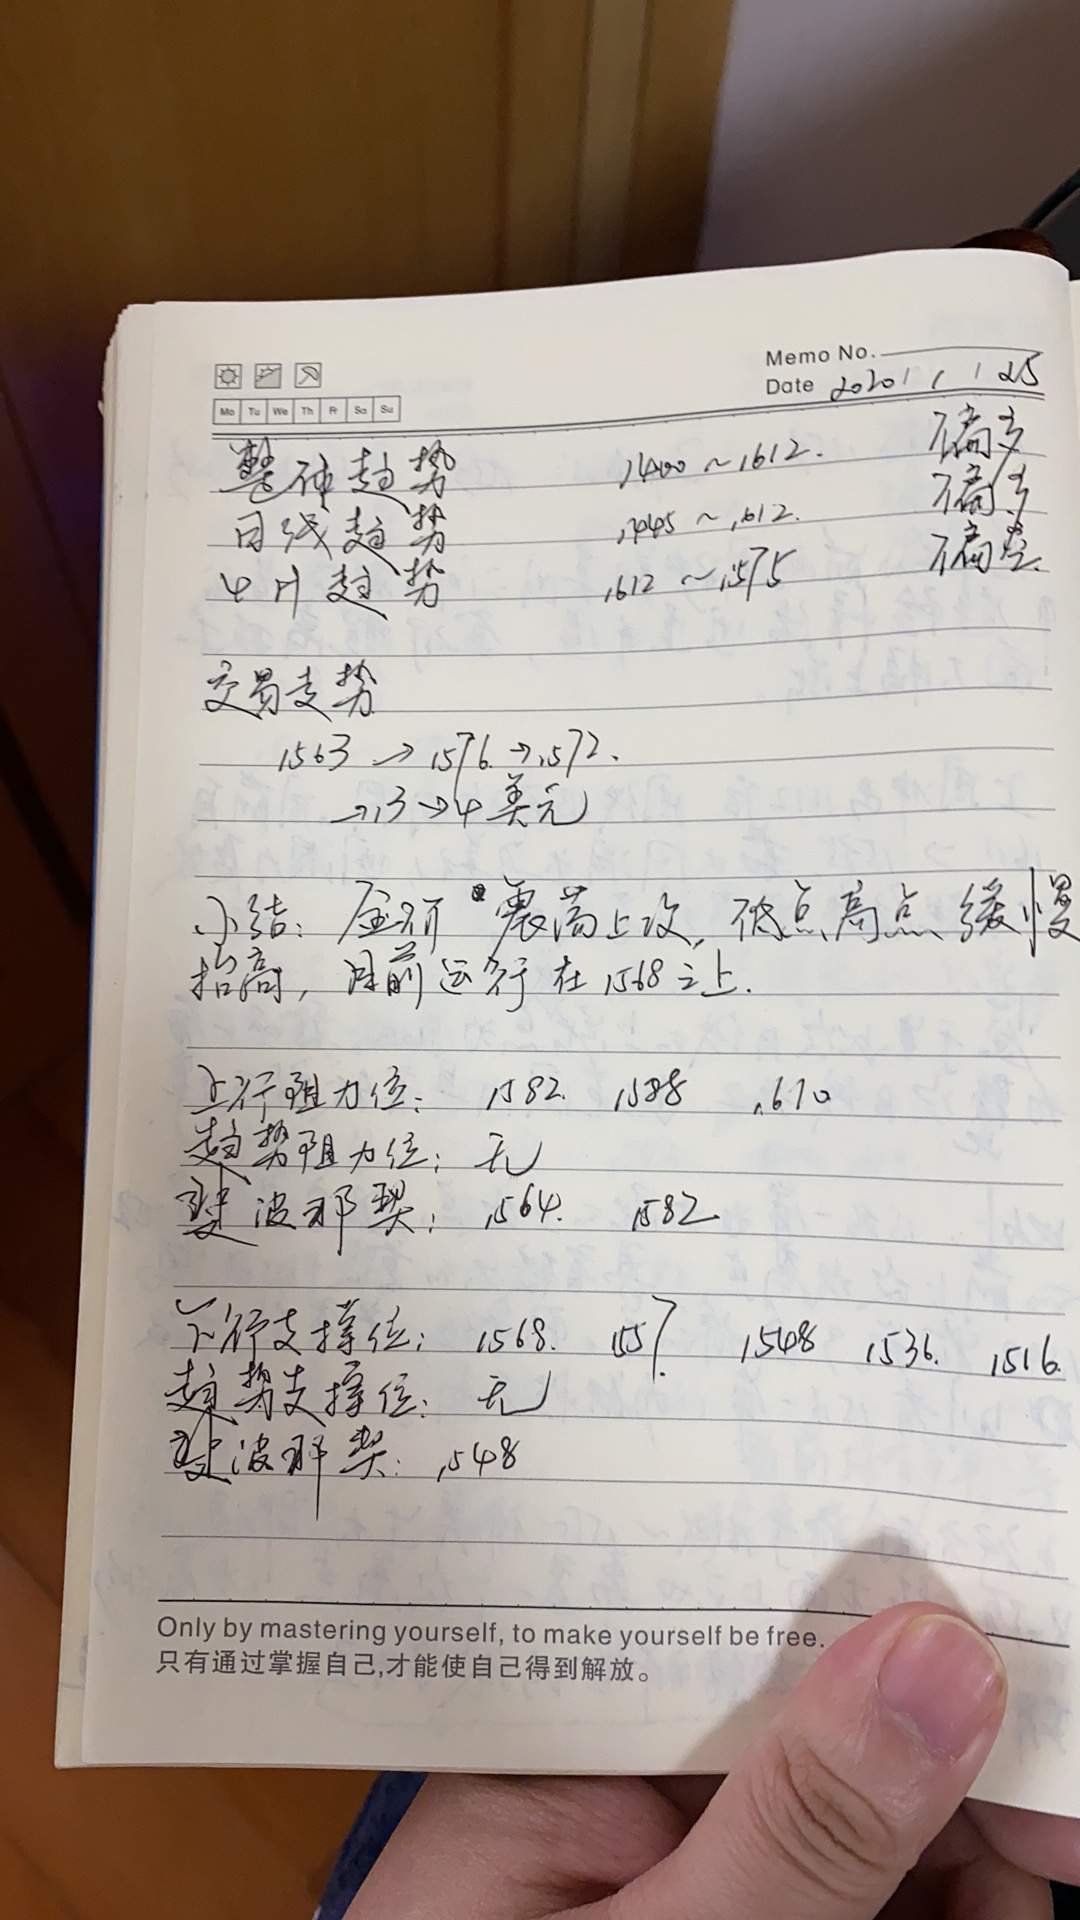 Memo No.
Date 2020 / 1 / 25
Mo Tu We Th Fr Sa Su
整体趋势 1400 ~ 1612. 偏多
日线趋势 1445 ~ 1612. 偏多
4H趋势 1612 ~ 1575 偏空.
交易走势
1563 → 1576 → 1572.
→ 13 → 4美元
小结: 金价震荡上攻, 低点高点缓慢
抬高, 目前运行在1568之上.
上行阻力位: 1582. 1588 1610
趋势阻力位: 无
斐波那契: 1564. 1582
下行支撑位: 1568. 1557. 1548 1536. 1516.
趋势支撑位: 无
斐波那契: 1548
Only by mastering yourself, to make yourself be free.
只有通过掌握自己,才能使自己得到解放。